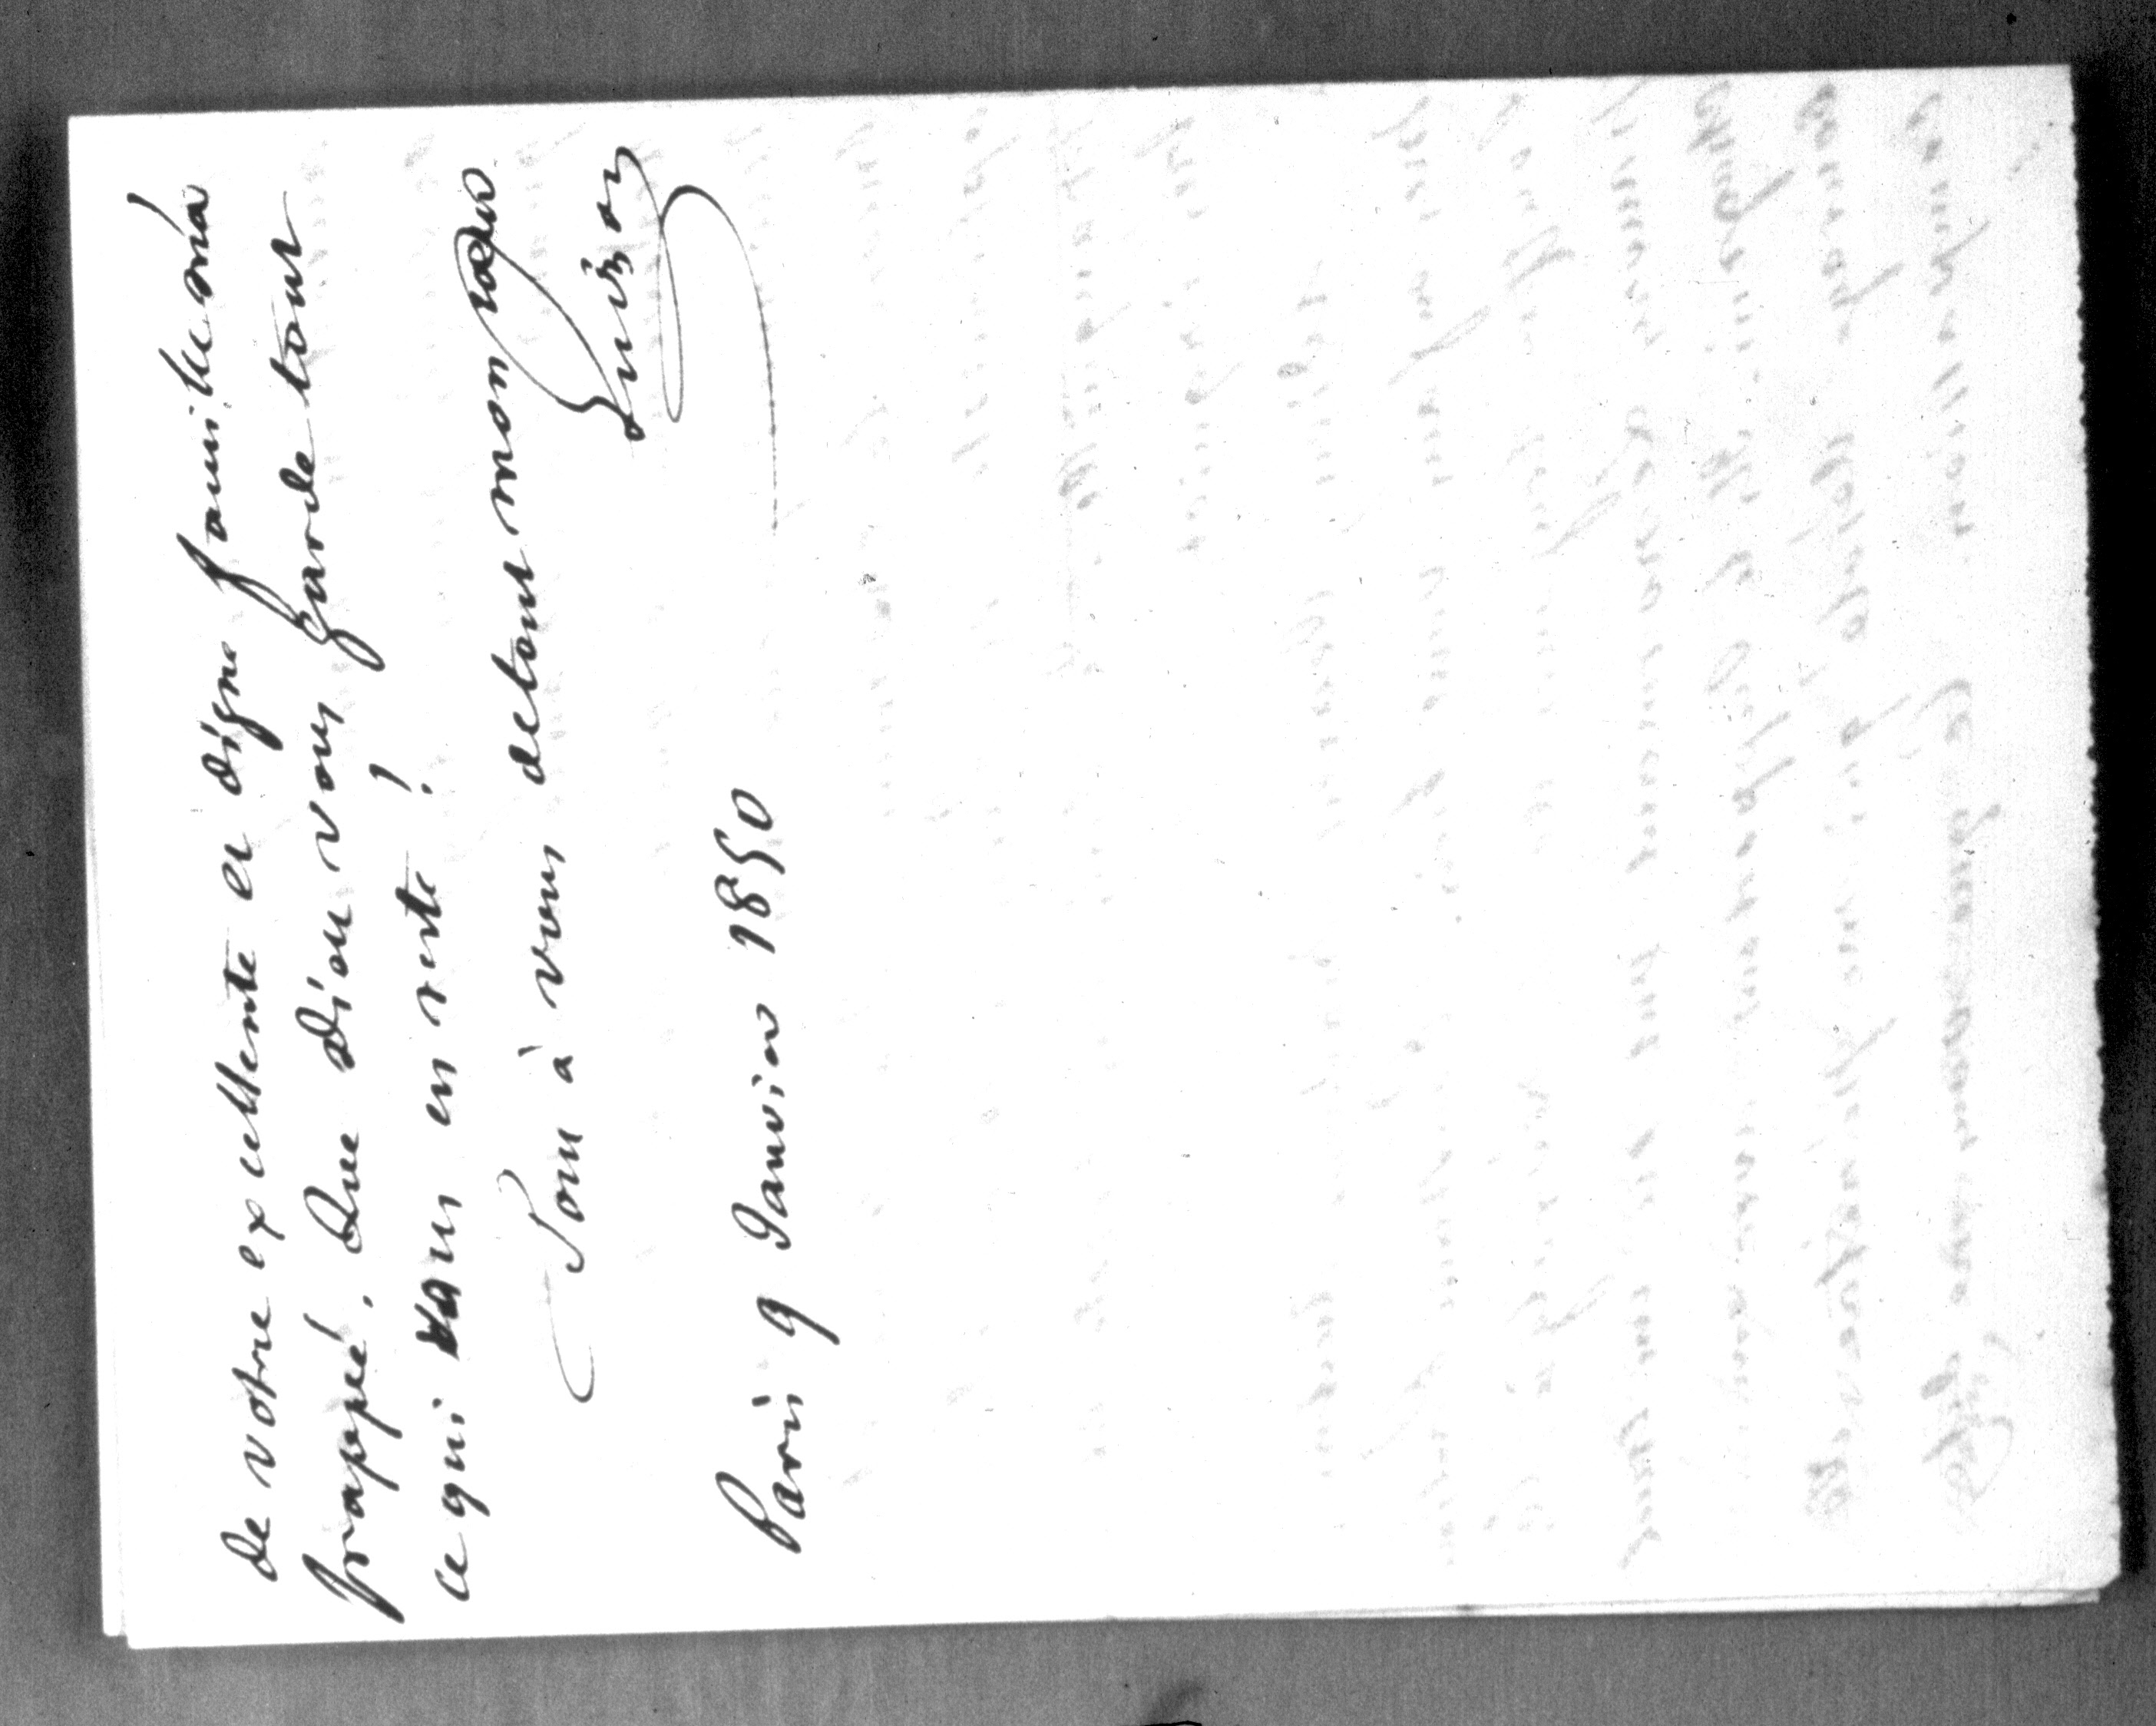 de votre excellente et digne famille m'a
frappé. Que Dieu vous garde tout
ce qui vous en reste !
Tout à vous de tout mon cœur
Guizot
Paris 9 Janvier 1850